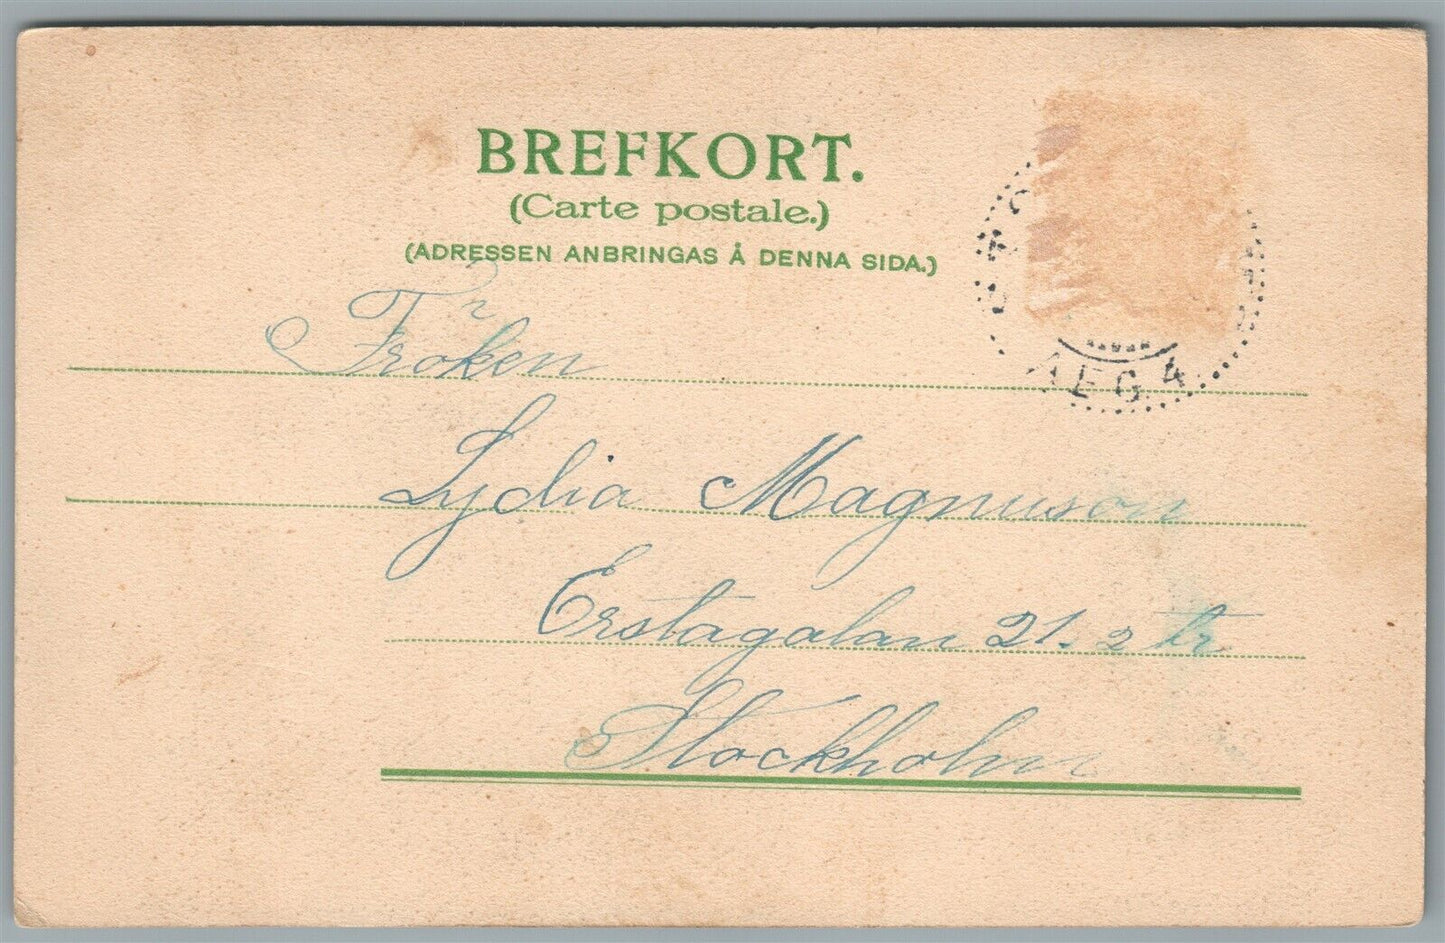 BREFKORT.
(Carte postale.)
(ADRESSEN ANBRINGAS Å DENNA SIDA.)
Fröken
Lydia Magnuson
Erstagatan 21. 2 tr
Stockholm